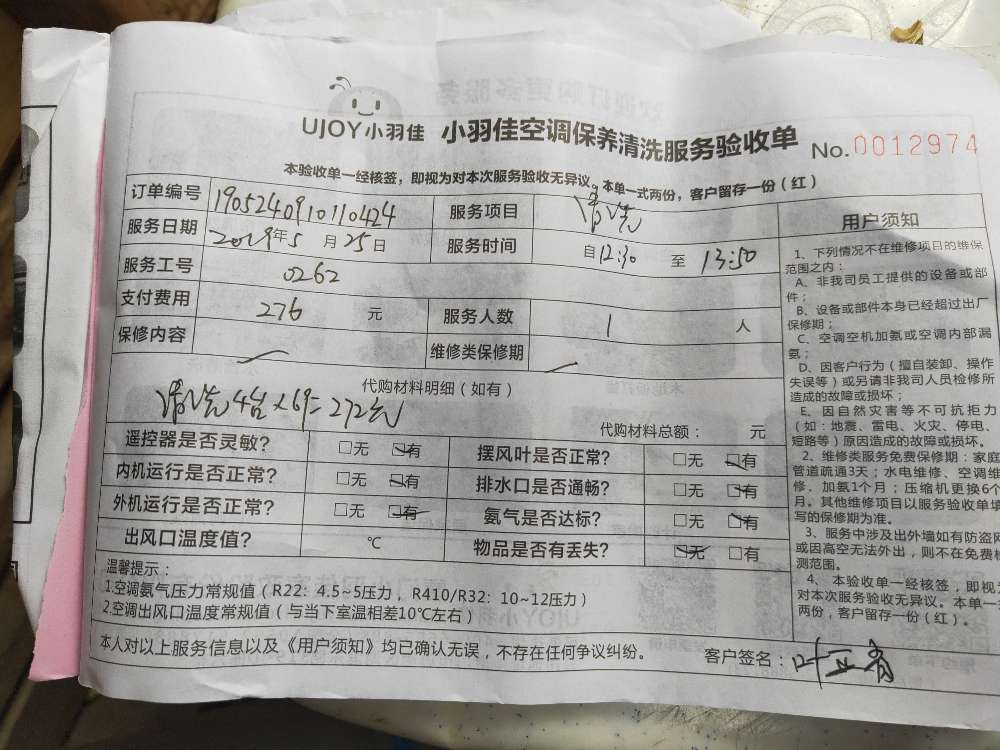 UJOY小羽佳 小羽佳空调保养清洗服务验收单 No.0012974
本验收单一经核签，即视为对本次服务验收无异议。本单一式两份，客户留存一份（红）
订单编号 1905240910110424 服务项目 清洗
服务日期 2019年5月25日 服务时间 自12:30 至 13:50
服务工号 0262
支付费用 276 元 服务人数 1 人
保修内容 维修类保修期
代购材料明细（如有）
清洗4台×69=272元
代购材料总额： 元
遥控器是否灵敏？ □无 □有 摆风叶是否正常？ □无 □有
内机运行是否正常？ □无 □有 排水口是否通畅？ □无 □有
外机运行是否正常？ □无 □有 氨气是否达标？ □无 □有
出风口温度值？ ℃ 物品是否有丢失？ □无 □有
温馨提示：
1.空调氨气压力常规值（R22：4.5~5压力，R410/R32：10~12压力）
2.空调出风口温度常规值（与当下室温相差10℃左右）
本人对以上服务信息以及《用户须知》均已确认无误，不存在任何争议纠纷。 客户签名：
用户须知
1、下列情况不在维修项目的维保
范围之内：
A、非我司员工提供的设备或部
件；
B、设备或部件本身已经超过出厂
保修期；
C、空调空机加氨或空调内部漏
氨；
D、因客户行为（擅自装卸、操作
失误等）或另请非我司人员检修所
造成的故障或损坏；
E、因自然灾害等不可抗拒力
（如：地震、雷电、火灾、停电、
短路等）原因造成的故障或损坏。
2、维修类服务免费保修期：家庭
管道疏通3天；水电维修、空调维
修、加氨1个月；压缩机更换6个
月。其他维修项目以服务验收单填
写的保修期为准。
3、服务中涉及出外墙如有防盗网
或因高空无法外出，则不在免费检
测范围。
4、本验收单一经核签，即视为
对本次服务验收无异议。本单一式
两份，客户留存一份（红）。